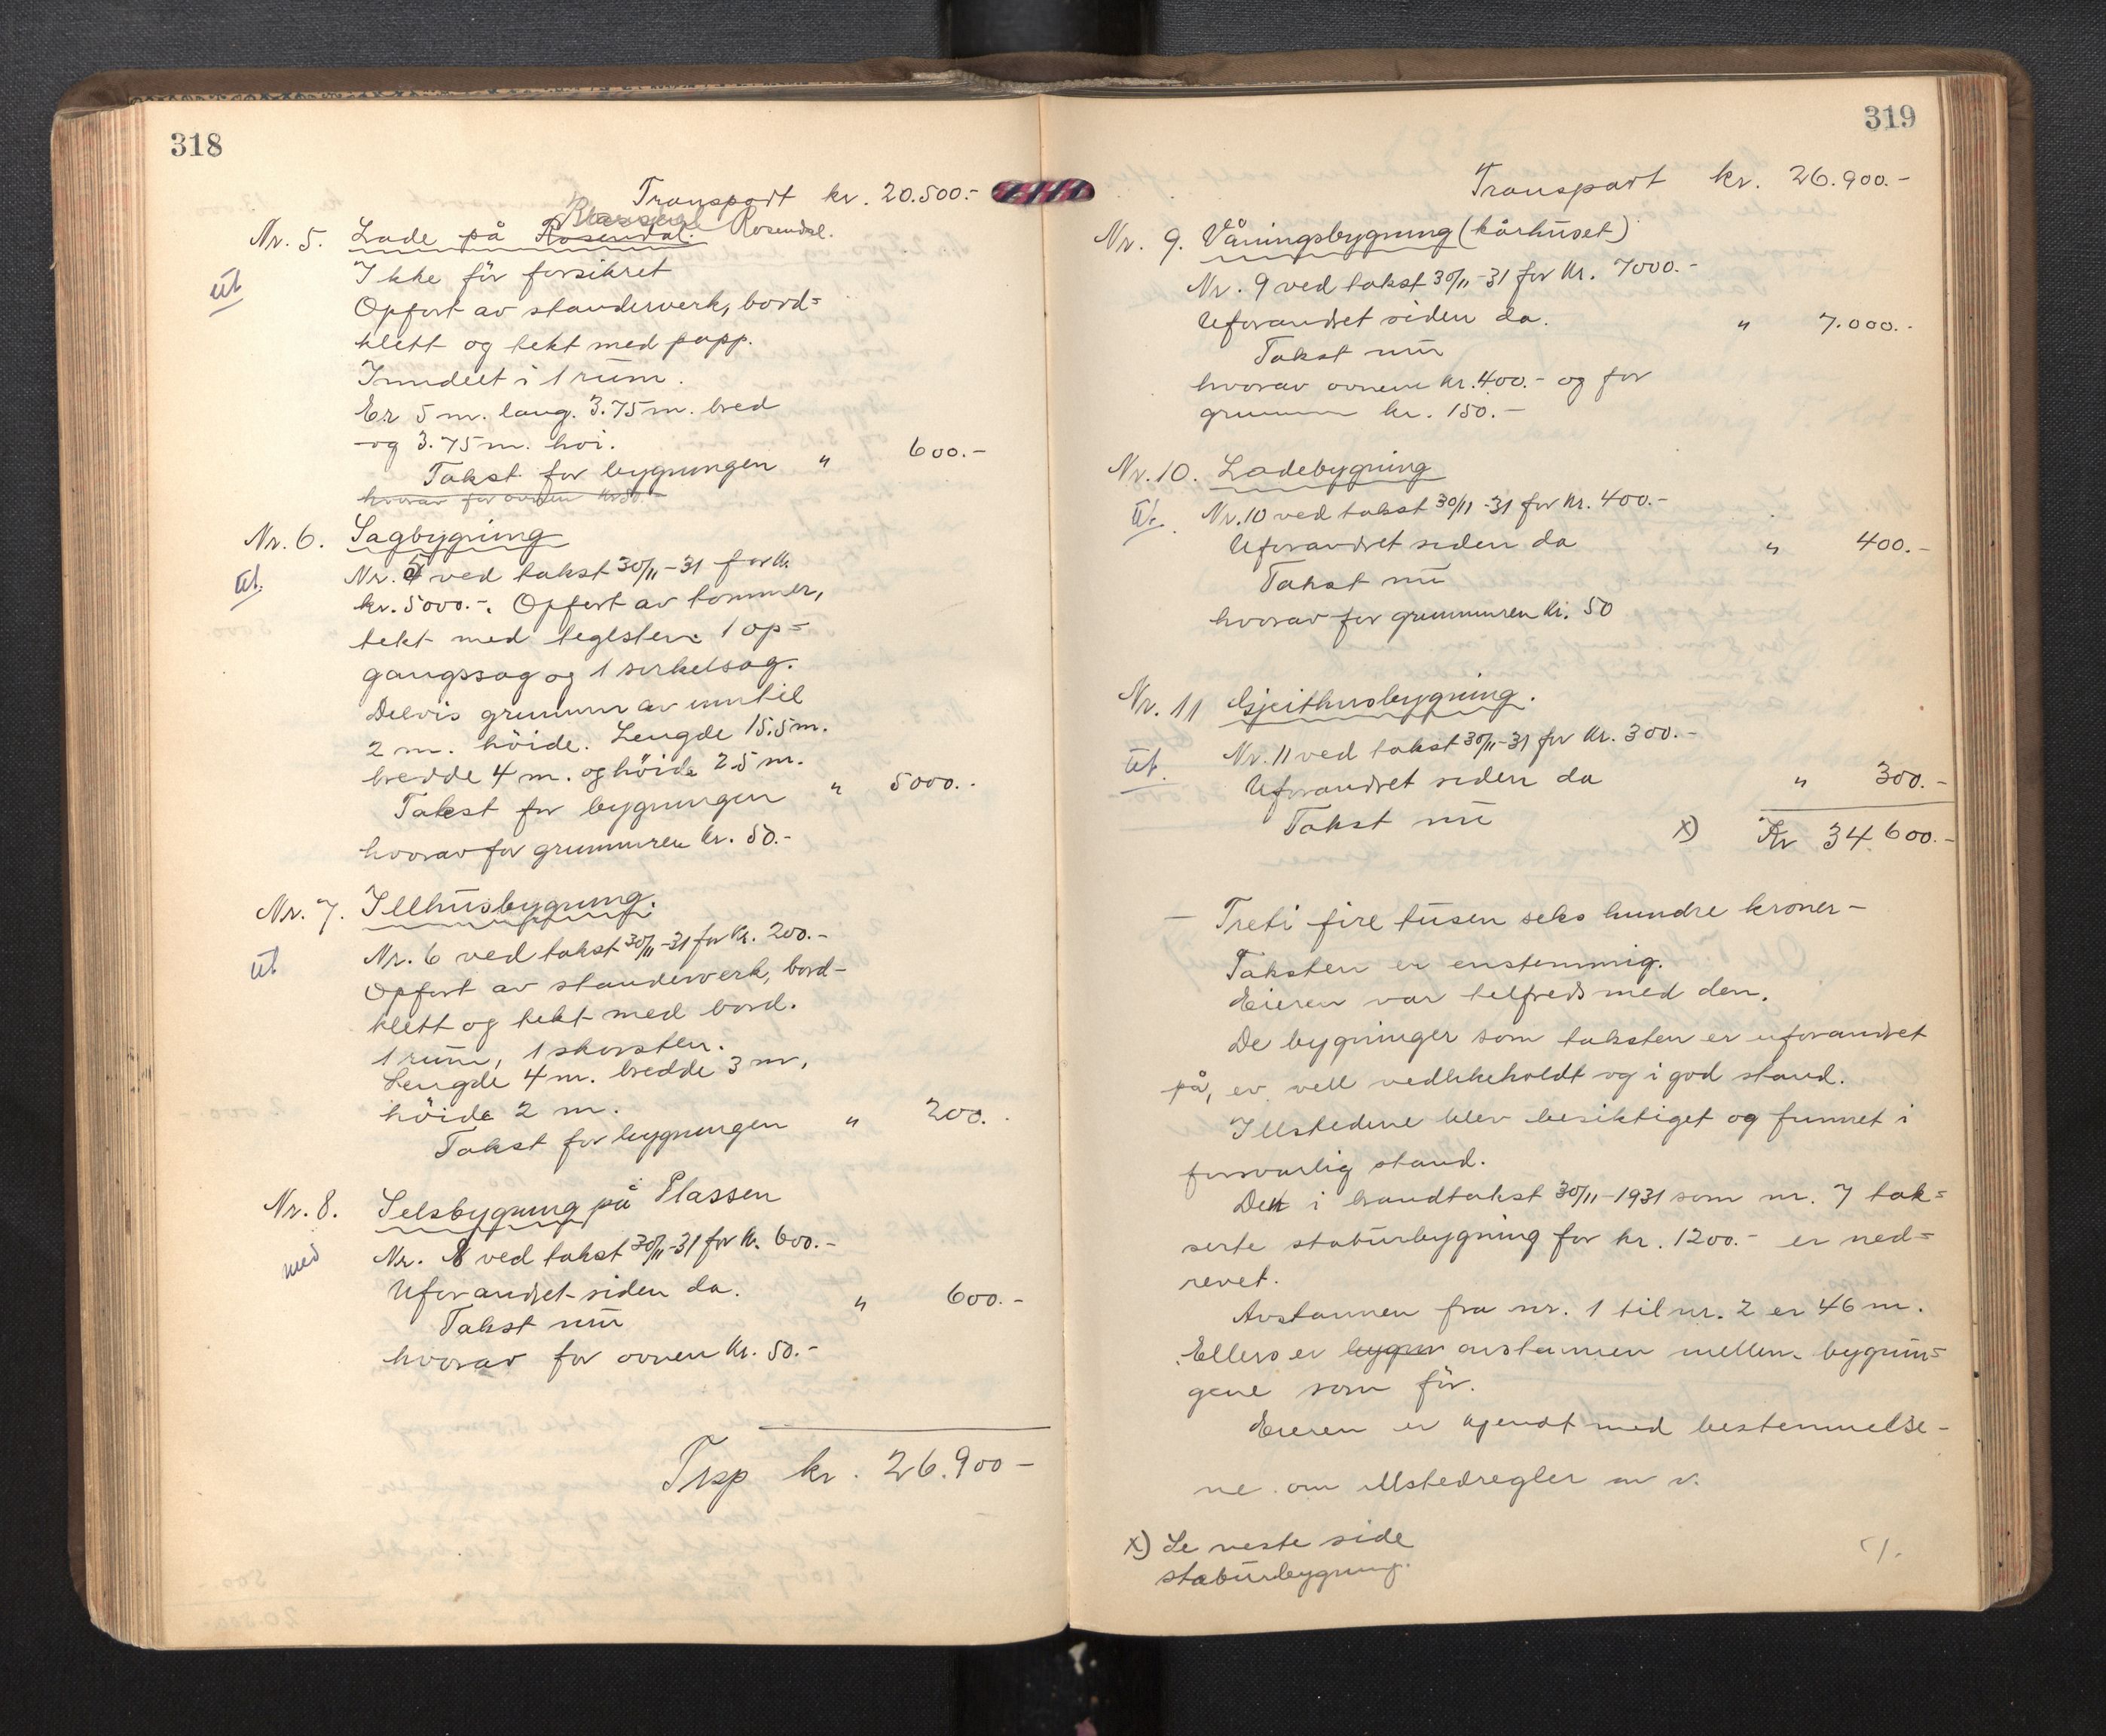 318
Transport kr. 20.500.-
Nr. 5. Lade på Rosendal. Rosendal.
Ut
Ikke för forsikret
Opfört av standerverk, bord=
klett og tekt med papp.
Inndelt i 1 rum.
Er 5 m. lang. 3.75 m. bred
og 3.75 m. höi.
Takst for bygningen " 600.-
hvorav for ovnen kr 50.-
Nr. 6. Sagbygning
Ut.
Nr. 5 ved takst 30/11-31 for kr.
kr. 5000.-. Opfört av tømmer,
tekt med teglsten. 1 op=
gangssag og 1 sirkelsag.
Delvis grunnmur av inntil
2 m. höide. Lengde 15.5 m.
bredde 4 m. og höide 2.5 m.
Takst for bygningen " 5000.-
hvorav for grunnmuren kr. 50.-
Nr. 7. Illhusbygning.
Ut
Nr. 6 ved takst 30/11-31 for kr. 200.-
Opfört av standerverk, bord-
klett og tekt med bord.
1 rum, 1 skorsten.
Lengde 4 m. bredde 3 m,
höide 2 m.
Takst for bygningen " 200.-
Nr. 8. Selsbygning på Plassen
med
Nr. 8 ved takst 30/11-31 for kr. 600.-
Uforandret siden da.
Takst nu " 600.-
hvorav for ovnen kr. 50.-
Trsp kr. 26.900-
319
Transport kr. 26.900.-
Nr. 9. Våningsbygning (kårhuset)
Nr. 9 ved takst 30/11-31 for kr. 7000.-
Uforandret siden da.
Takst nu " 7.000.-
hvorav ovnene kr. 400.- og for
grunnmur kr. 150.-
Nr. 10. Ladebygning
Ut.
Nr. 10 ved takst 30/11-31 for kr. 400.-
Uforandret siden da
Takst nu " 400.-
hvorav for grunnmuren kr. 50
Nr. 11 Gjeithusbygning.
Ut.
Nr. 11 ved takst 30/11-31 for kr. 300.-
Uforandret siden da
Takst nu " 300.-
x) Kr 34.600.-
- Treti fire tusen seks hundre kroner -
Taksten er enstemmig.
Eieren var telfreds med den.
De bygninger som taksten er uforandret
på, er vell vedlikeholdt og i god stand.
Illstedene blev besiktiget og funnet i
forsvarlig stand.
Den i brandtakst 30/11-1931 som nr. 7 tak=
serte stabursbygning for kr. 1200.- er ned=
revet.
Avstannen fra nr. 1 til nr. 2 er 46 m.
Ellers er bygni avstannen mellem bygnin=
gene som för.
Eieren er kjendt med bestemmelse-
ne om illstedregler m v.
x) Se neste side
stabursbygning.